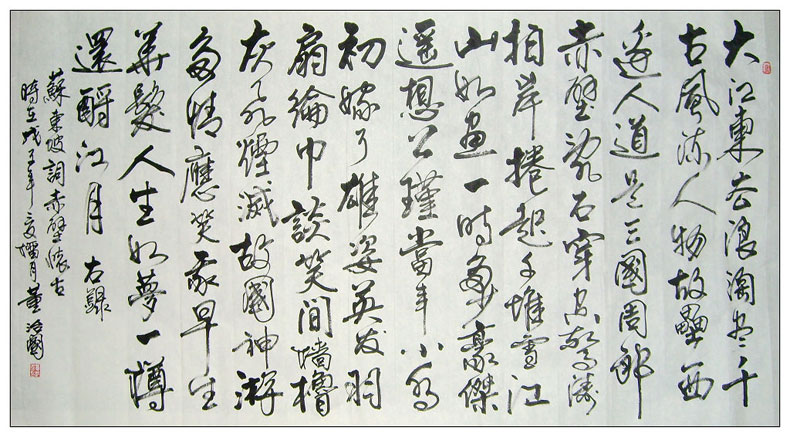 大江東去浪淘盡千
古風流人物故壘西
邊人道是三國周郎
赤壁亂石穿空驚濤
拍岸捲起千堆雪江
山如畫一時多少豪傑
遙想公瑾當年小喬
初嫁了雄姿英发羽
扇綸巾談笑間檣櫓
灰飛煙滅故國神游
多情應笑我早生
華髮人生如夢一樽
還酹江月 右錄
蘇東坡詞赤壁懷古
時在戊子年 臘月董